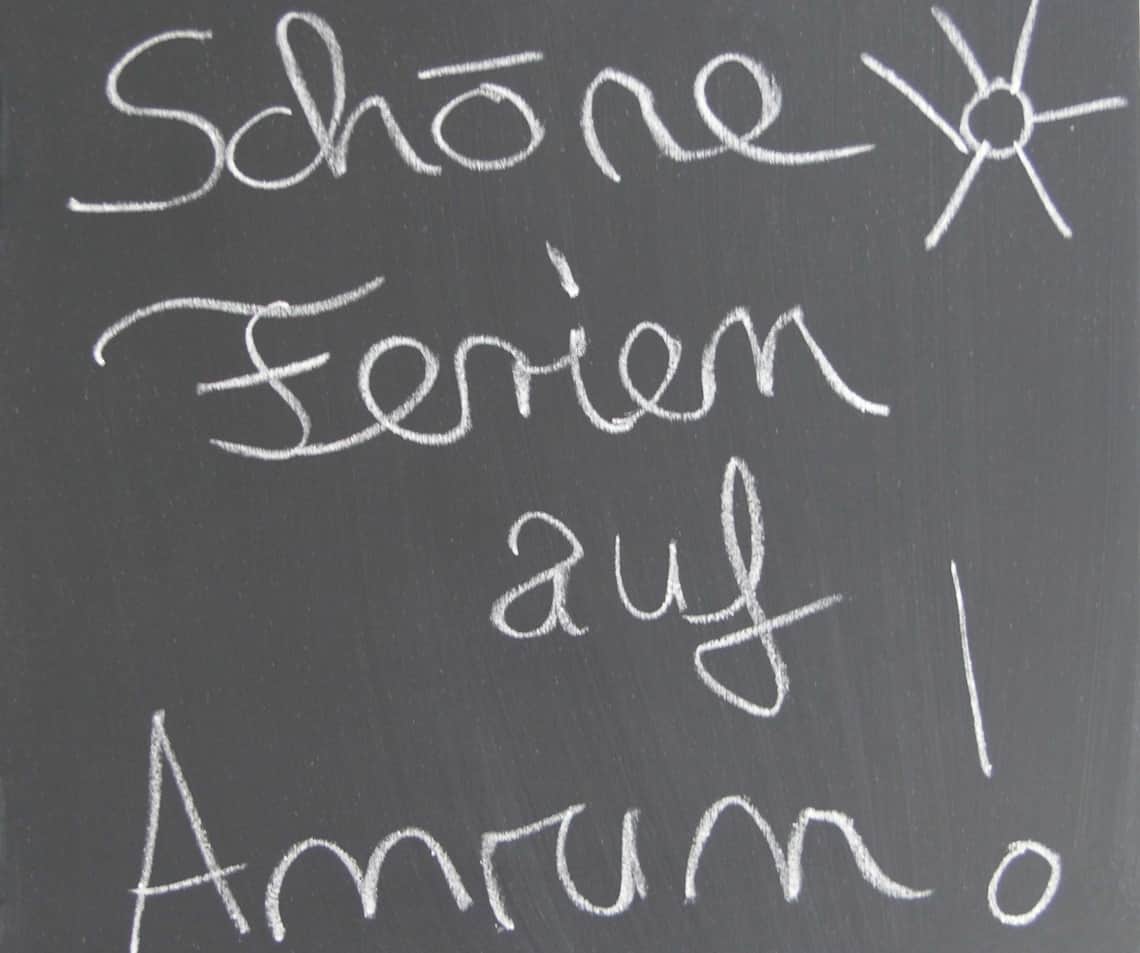 Schöne
Ferien
auf
Amrum!